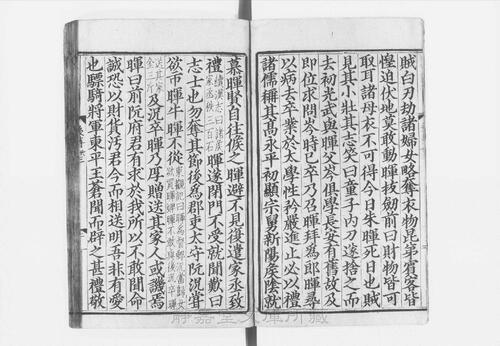 賊白刃劫諸婦女略奪衣物昆弟賓客皆
惶迫伏地莫敢動暉拔劒前曰財物皆可
取耳諸母衣不可得今日朱暉死日也賊
見其小壯其志笑曰童子內刀遂捨之而
去初光武與暉父岑俱學長安有舊故及
即位求問岑時已卒乃召暉拜爲郎暉尋
以病去卒業於太學性矜嚴進止必以禮
諸儒稱其高永平初顯宗舅新陽侯陰就
慕暉賢自往候之暉避不見復遣家丞致
禮續漢志曰諸侯家丞秩三百石暉遂閉門不受就聞歎曰
志士也勿奪其節後爲郡吏太守阮況嘗
欲市暉牛暉不從東觀記曰暉爲督郵況當歸女欲買暉婢暉不敢與後況卒暉
送其家金三斤及況卒暉乃厚贈送其家人或譏焉
暉曰前阮府君有求於我所以不敢聞命
誠恐以財貨汙君今而相送明吾非有愛
也驃騎將軍東平王蒼聞而辟之甚禮敬
静嘉堂文庫所蔵